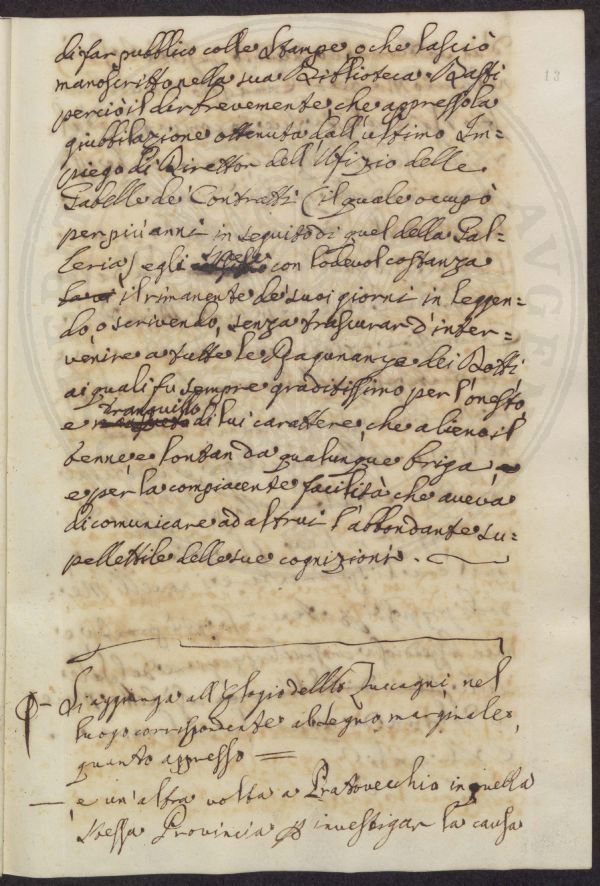 13
di far pubblico colle Stampe o che lasciò
manoscritto nella sua Biblioteca. Basti
perciò il dir brevemente che appresso la
giubbilazione ottenuta dall'ultimo Im=
piego di Direttor dell'Ufizio delle
Gabelle de' Contratti (il quale occupò
per più anni in seguito di quel della Gal=
leria) egli con lodevol costanza
il rimanente de' suoi giorni in leggen=
do, o scrivendo, senza trascurar d'inter=
venire a tutte le Ragunanze dei Dotti
ai quali fu sempre graditissimo per l'onesto,
e tranquillo di lui carattere, che alieno il
tenne e lontan da qualunque briga
e per la compiacente facilità che aveva
di comunicare ad altrui l'abbondante su=
pellettile delle sue cognizioni.
Si aggiunga all'Elogio dell Zuccagni nel
luogo corrispondente al segno marginale,
quanto appresso =
— e un'altra volta a Pratovecchio in quella
stessa Provincia p investigar la causa